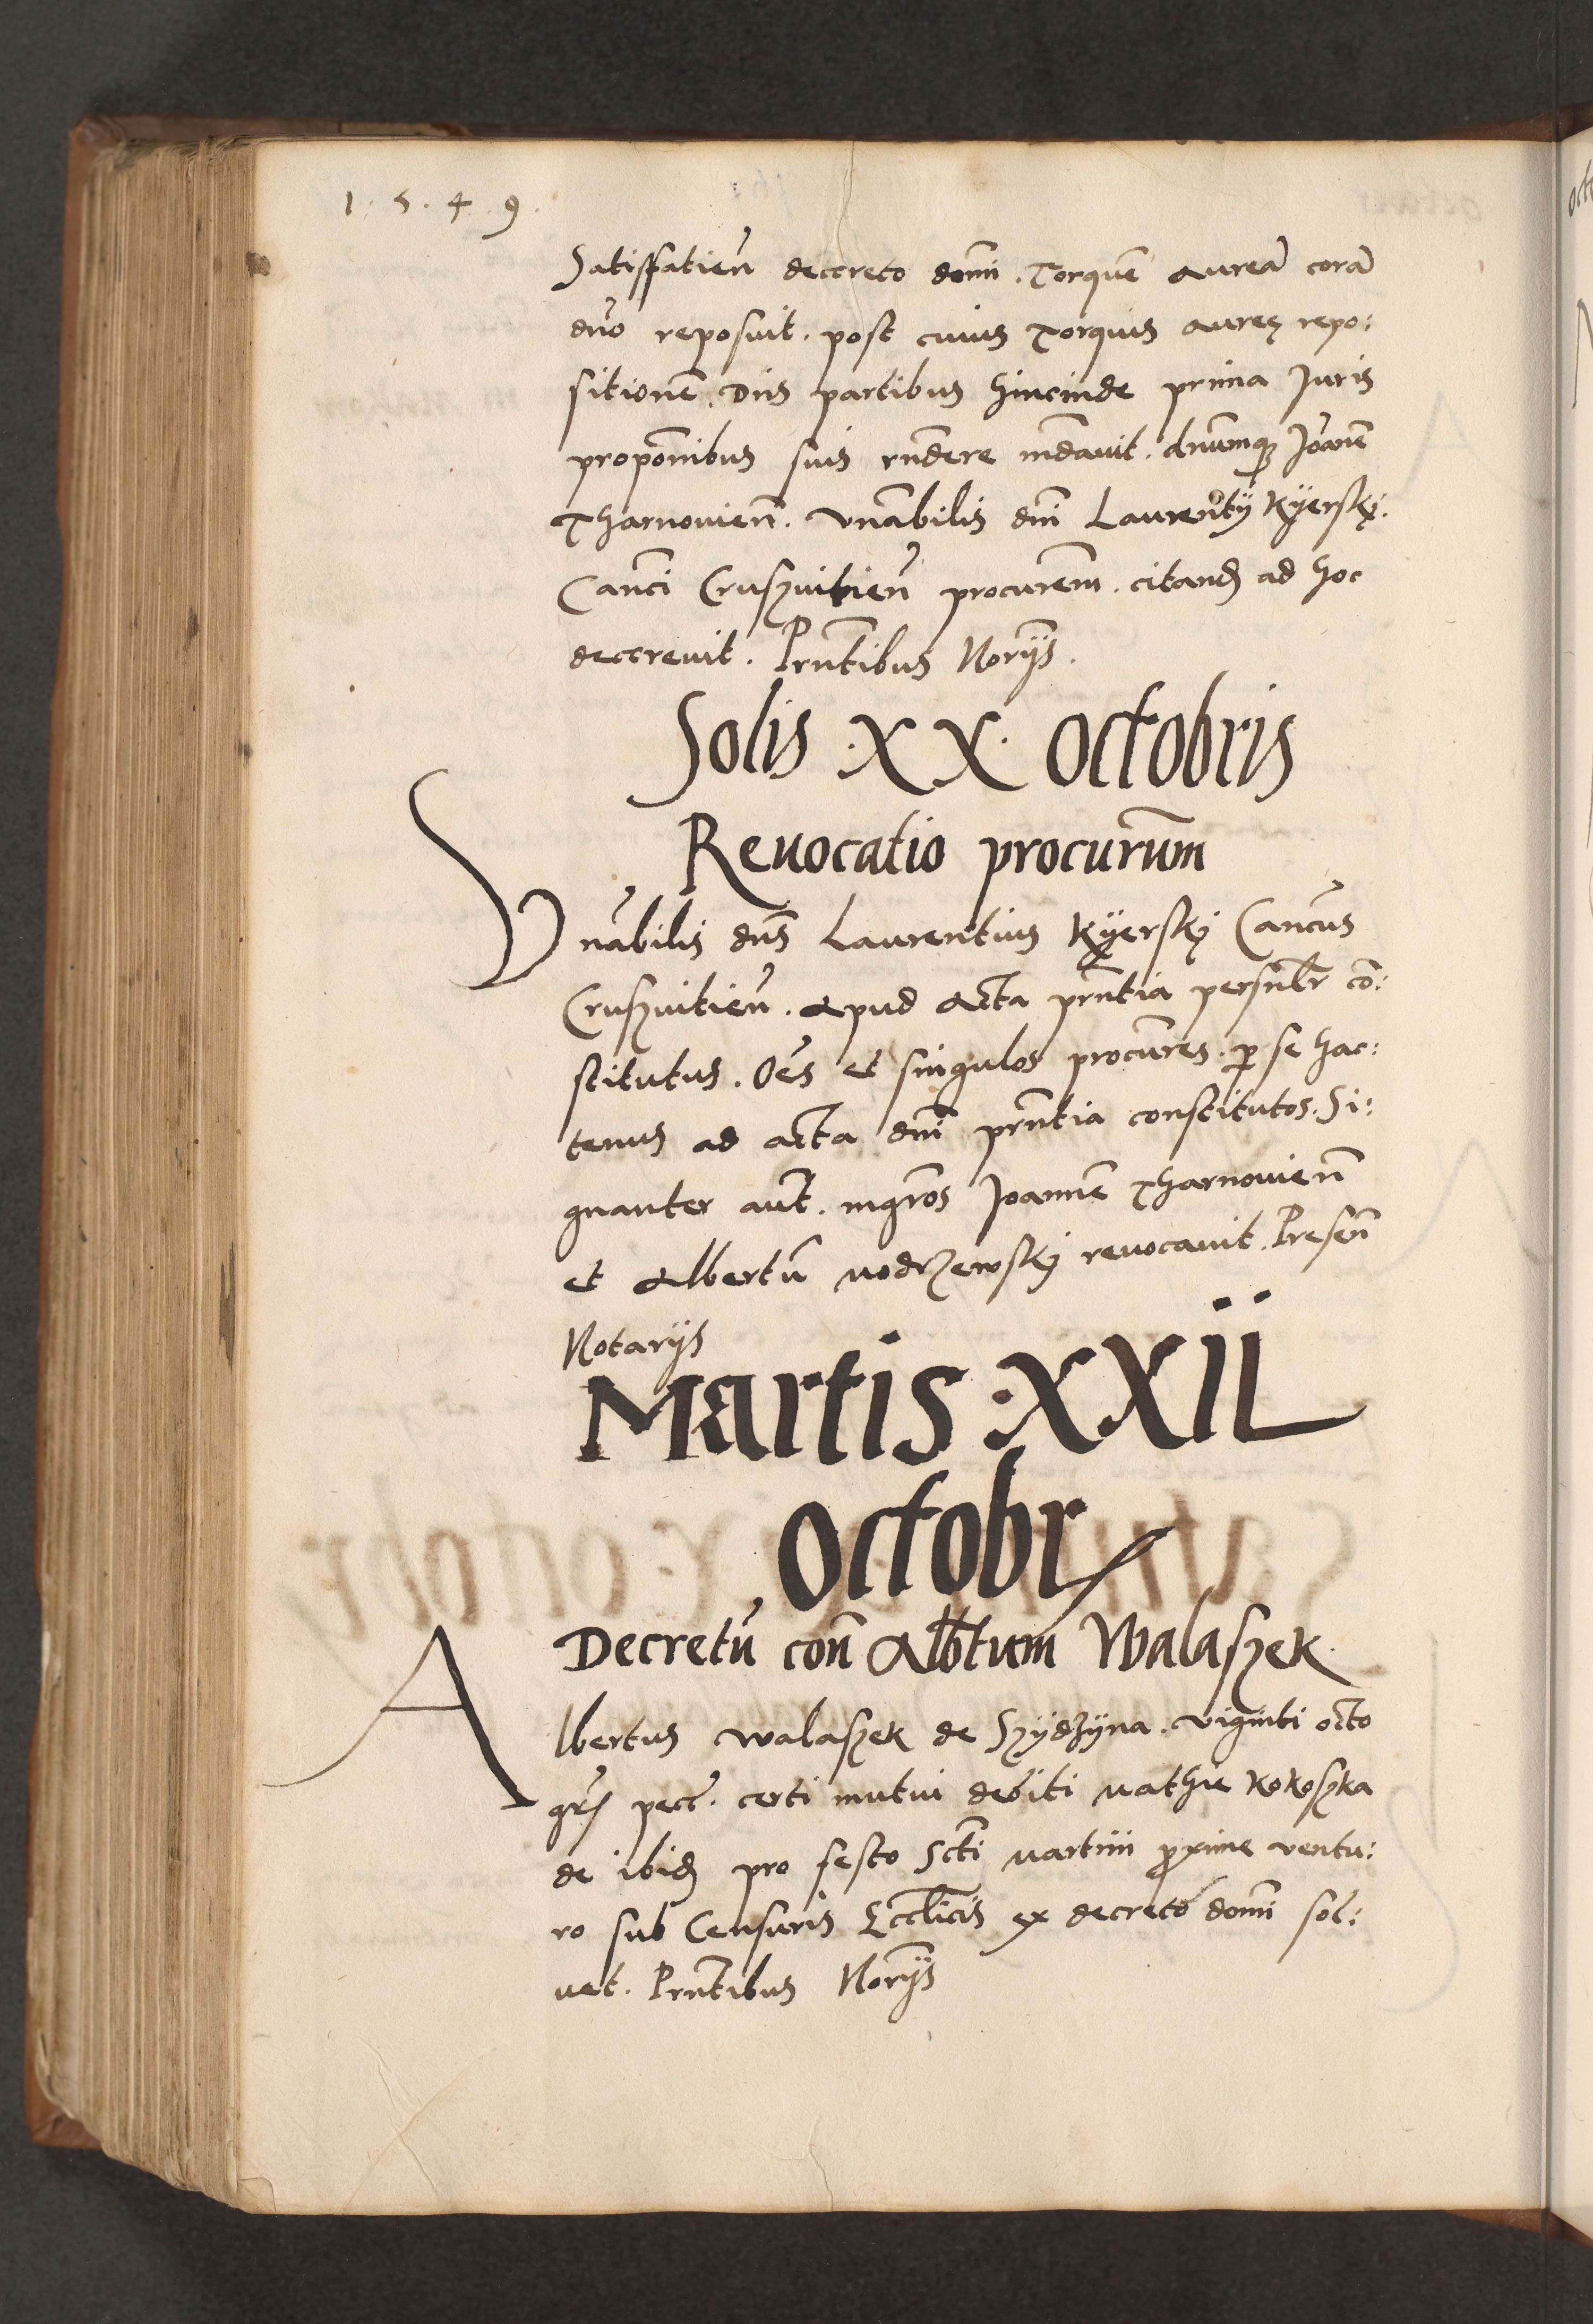 1 . 5 . 4 . 9 .
Satisfatien̄ decreto dom̄i . Torquē aureā corā
dn̄o reposuit . post cuius Torquis aureę repo:
sitionē . Dn̄s partibus hincinde prima Juris
propōnibus suis rn̄dere mādavit . dnumq̄ Joānē
Tharnovien̄ . Vn̄abilis dn̄i Laurentÿ Kÿerskj .
Can̄ci Crusṿitien̄ procurem̄ . citand ad hoc
decrevit . Prn̄tibus Norÿs .
Solis . XX . octobris
Revocatio procurum̄
Vn̄abilis dn̄s Laurentius Kÿerskj Cancus̄
Crusvitien̄ . apud acta prn̄tia persnlr̄ cō:
stitutus . Oēs et singulos procures̄ . p se hac:
tenus ad acta dn̄i prn̄tia constitutos . Si:
gnanter aut̄ . mgros̄ Joannē Tharnovien̄
et Albertū modrzewskj revocavit . Presen̄
Notarÿs
Martis . XXII
octobr
Decretū con̄ Albt̄um Walaszek
Albertus Walaszek de Szÿdzÿna . viginti octo
gr̄ pecc̄ . certi mutui debiti Mathie Kokoszka
de ibid pro festo Scti Martini proxime ventu:
ro sub Censuris Eccl̄icis ex decreto dom̄i sol:
vet . Prn̄tibus Norÿs